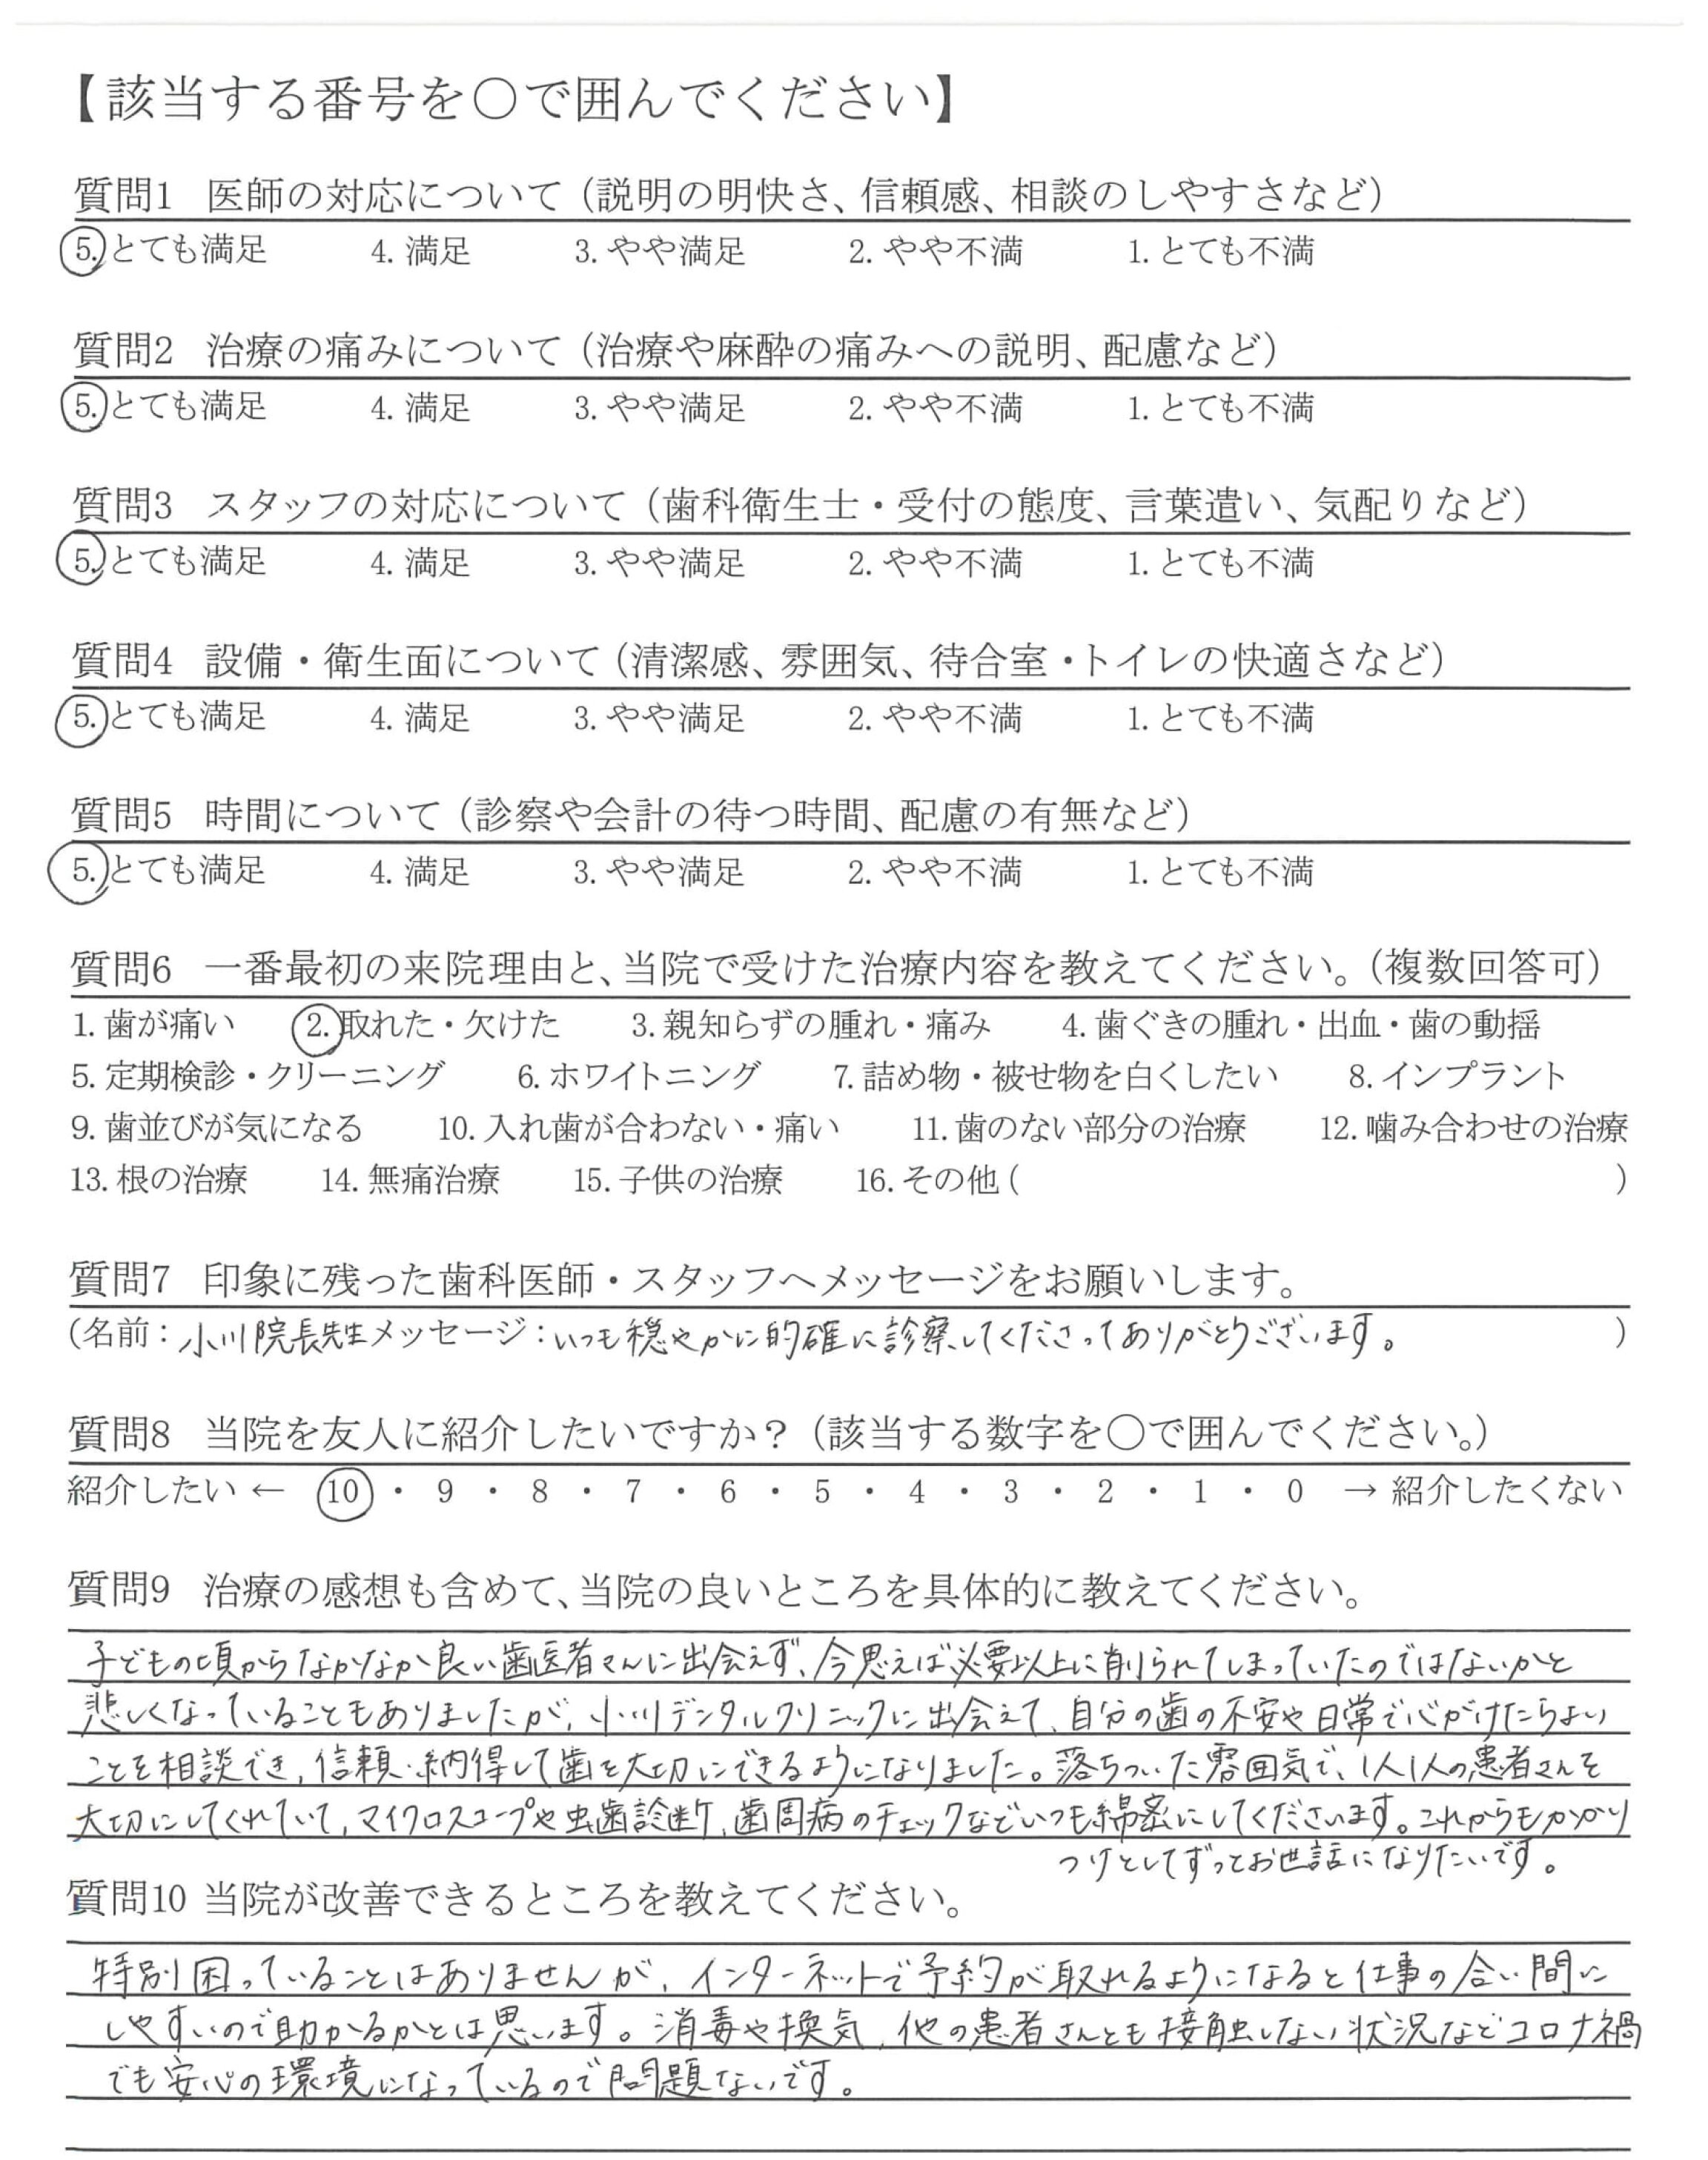 【該当する番号を〇で囲んでください】
質問1 医師の対応について（説明の明快さ、信頼感、相談のしやすさなど）
5. とても満足 4. 満足 3. やや満足 2. やや不満 1. とても不満
質問2 治療の痛みについて（治療や麻酔の痛みへの説明、配慮など）
5. とても満足 4. 満足 3. やや満足 2. やや不満 1. とても不満
質問3 スタッフの対応について（歯科衛生士・受付の態度、言葉遣い、気配りなど）
5. とても満足 4. 満足 3. やや満足 2. やや不満 1. とても不満
質問4 設備・衛生面について（清潔感、雰囲気、待合室・トイレの快適さなど）
5. とても満足 4. 満足 3. やや満足 2. やや不満 1. とても不満
質問5 時間について（診察や会計の待つ時間、配慮の有無など）
5. とても満足 4. 満足 3. やや満足 2. やや不満 1. とても不満
質問6 一番最初の来院理由と、当院で受けた治療内容を教えてください。（複数回答可）
1. 歯が痛い 2. 取れた・欠けた 3. 親知らずの腫れ・痛み 4. 歯ぐきの腫れ・出血・歯の動揺
5. 定期検診・クリーニング 6. ホワイトニング 7. 詰め物・被せ物を白くしたい 8. インプラント
9. 歯並びが気になる 10. 入れ歯が合わない・痛い 11. 歯のない部分の治療 12. 噛み合わせの治療
13. 根の治療 14. 無痛治療 15. 子供の治療 16. その他（ ）
質問7 印象に残った歯科医師・スタッフへメッセージをお願いします。
（名前：小川院長先生メッセージ：いつも穏やかに的確に診察してくださってありがとうございます。 ）
質問8 当院を友人に紹介したいですか？（該当する数字を〇で囲んでください。）
紹介したい ← 10 ・ 9 ・ 8 ・ 7 ・ 6 ・ 5 ・ 4 ・ 3 ・ 2 ・ 1 ・ 0 → 紹介したくない
質問9 治療の感想も含めて、当院の良いところを具体的に教えてください。
子どもの頃からなかなか良い歯医者さんに出会えず、今思えば必要以上に削られてしまっていたのではないかと
悲しくなっていることもありましたが、小川デンタルクリニックに出会えて、自分の歯の不安や日常で心がけたらよい
ことを相談でき、信頼・納得して歯を大切にできるようになりました。落ちついた雰囲気で、1人1人の患者さんを
大切にしてくれていて、マイクロスコープや虫歯診断、歯周病のチェックなどいつも綿密にしてくださいます。これからもかかり
つけとしてずっとお世話になりたいです。
質問10 当院が改善できるところを教えてください。
特別困っていることはありませんが、インターネットで予約が取れるようになると仕事の合い間に
しやすいので助かるかとは思います。消毒や換気、他の患者さんとも接触しない状況などコロナ禍
でも安心の環境になっているので問題ないです。